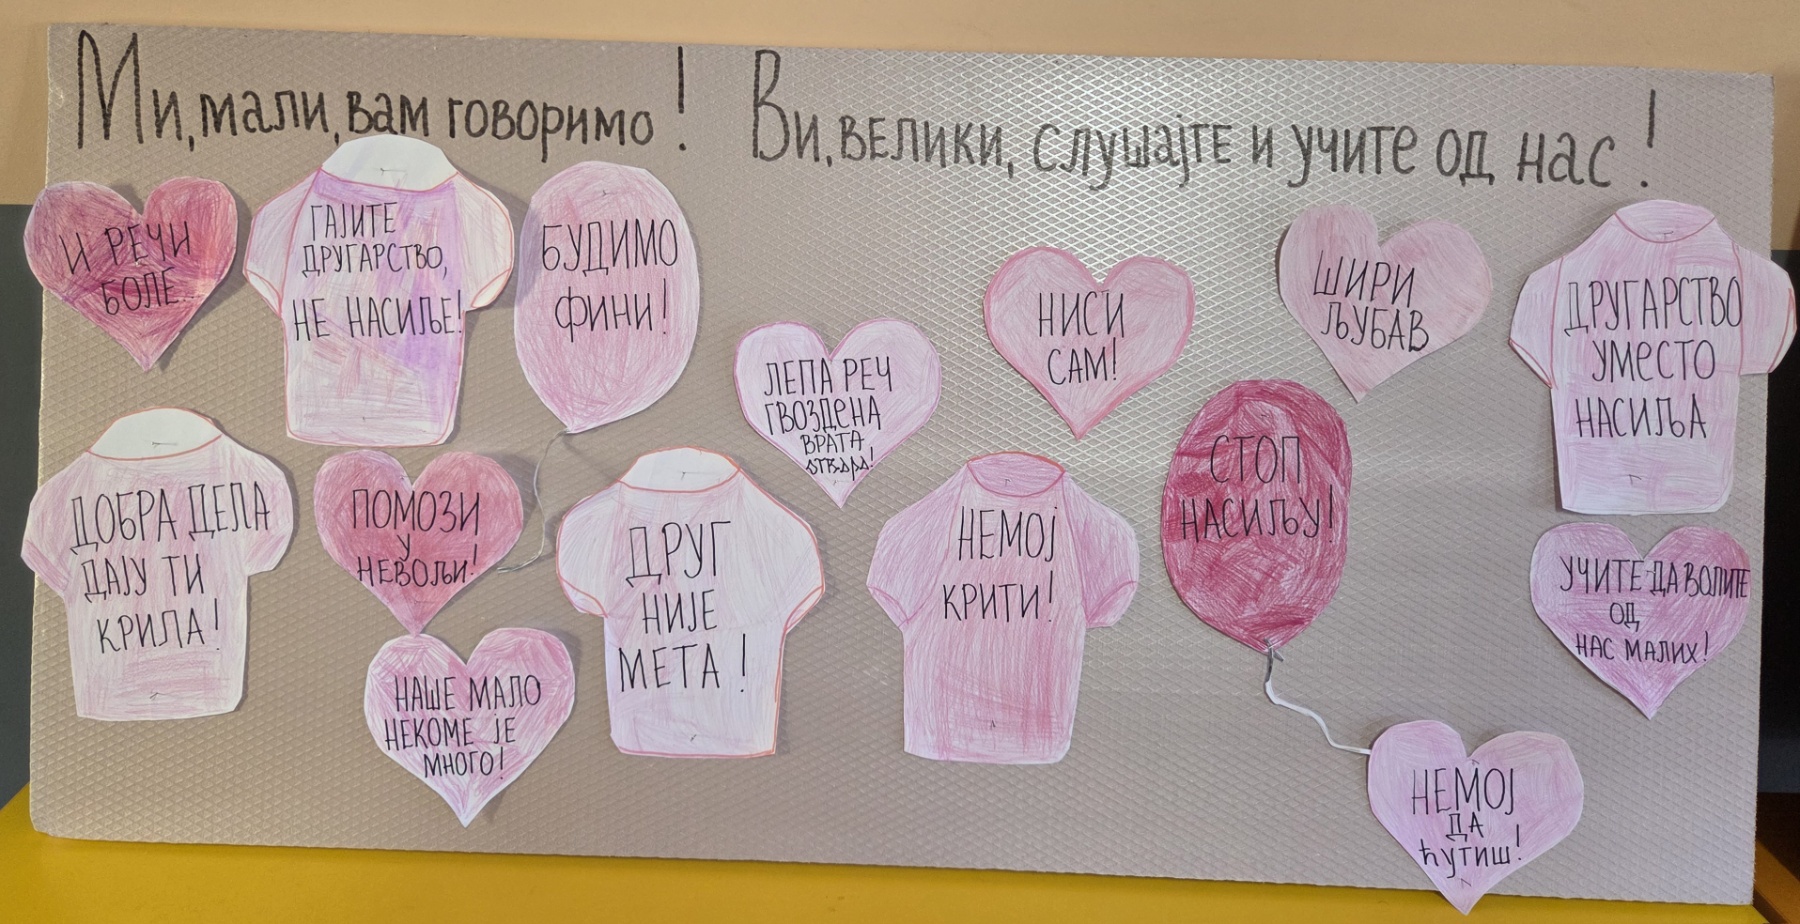 Ми, мали, вам говоримо! Ви, велики, слушајте и учите од нас!
И РЕЧИ
БОЛЕ...
ГАЈИТЕ
ДРУГАРСТВО,
НЕ НАСИЉЕ!
БУДИМО
ФИНИ!
ЛЕПА РЕЧ
ГВОЗДЕНА
ВРАТА
ОТВАРА!
НИСИ
САМ!
ШИРИ
ЉУБАВ
ДРУГАРСТВО
УМЕСТО
НАСИЉА
ДОБРА ДЕЛА
ДАЈУ ТИ
КРИЛА!
ПОМОЗИ
У
НЕВОЉИ!
ДРУГ
НИЈЕ
МЕТА!
НЕМОЈ
КРИТИ!
СТОП
НАСИЉУ!
УЧИТЕ ДА ВОЛИТЕ
ОД
НАС МАЛИХ!
НАШЕ МАЛО
НЕКОМЕ ЈЕ
МНОГО!
НЕМОЈ
ДА
ЋУТИШ!